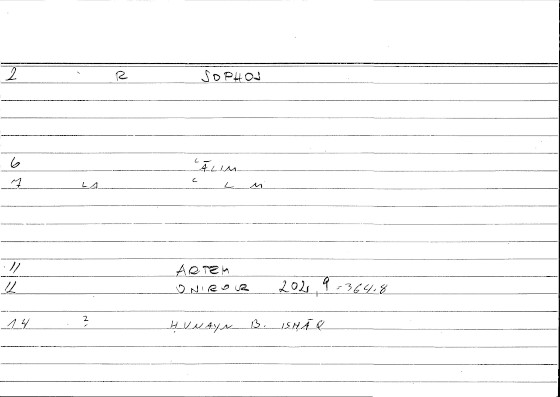 2 R SOPHOS
6 ʿĀLIM
7 LA ʿ L M
11 ARTEM
12 ONIROCR 202, 9 = 364.8
14 ? ḤUNAYN B. ISḤĀQ